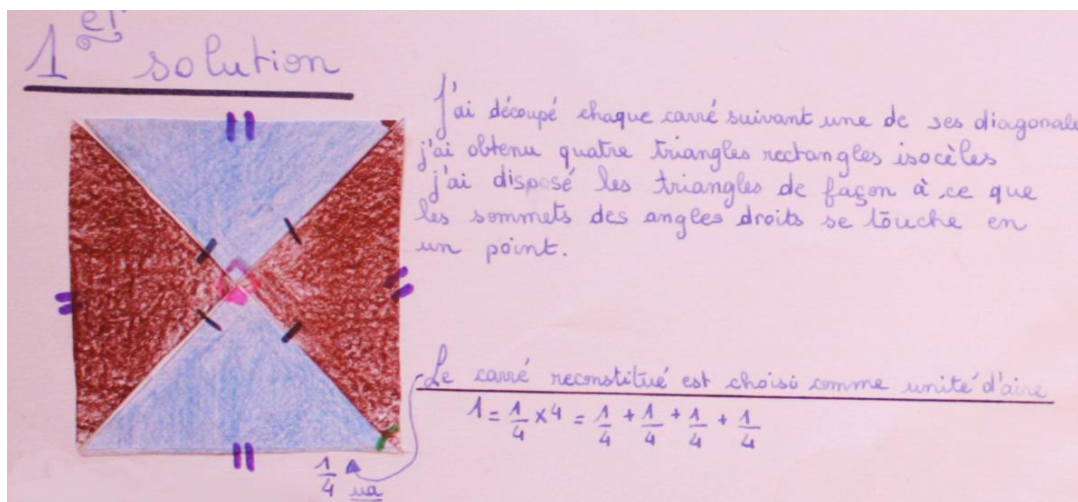 1er solution
J'ai découpé chaque carré suivant une de ses diagonale
j'ai obtenu quatre triangles rectangles isocèles
j'ai disposé les triangles de façon à ce que
les sommets des angles droits se touche en
un point.
Le carré reconstitué est choisi comme unité d'aire
1 = 1/4 x 4 = 1/4 + 1/4 + 1/4 + 1/4
1/4 ua